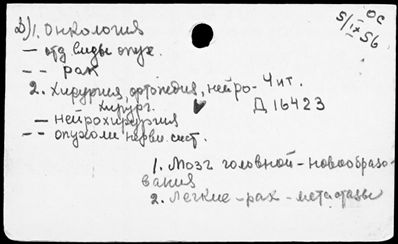 Д) 1. Онкология
— отд виды опух.
-- рак
2. Хирургия, ортопедия, нейро-
хирург.
— нейрохирургия
-- опухоли нервн. сист.
ОС
5/IX 56
Чит.
Д 16423
1. Мозг головной - новообразо-
вания
2. Легкие - рак - метастазы